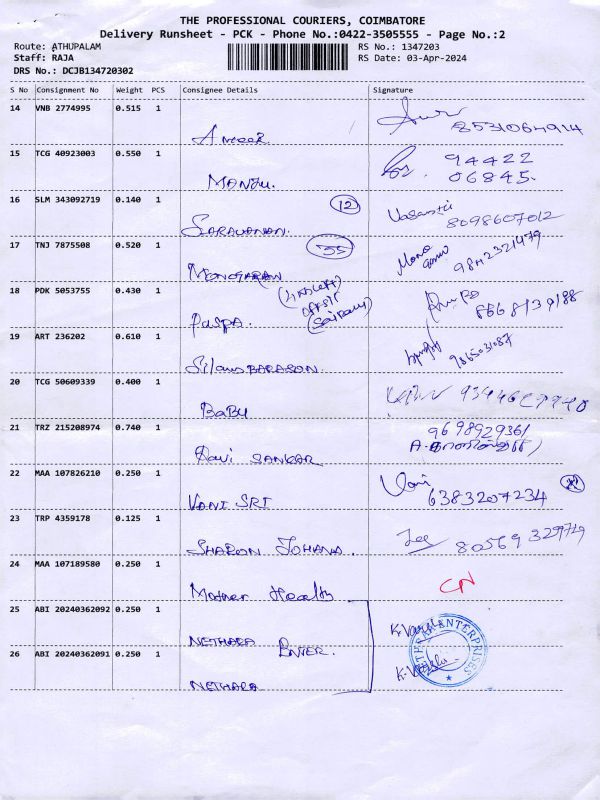 THE PROFESSIONAL COURIERS, COIMBATORE
Delivery Runsheet - PCK - Phone No.:0422-3505555 - Page No.:2
Route: ATHUPALAM RS No.: 1347203
Staff: RAJA RS Date: 03-Apr-2024
DRS No.: DCJB134720302
S No Consignment No Weight PCS Consignee Details Signature
14 VNB 2774995 0.515 1
8531064914
15 TCG 40923003 0.550 1
94422
MANJU. 06845.
16 SLM 343092719 0.140 1
12
SARAVANAN. 8098607012
17 TNJ 7875508 0.520 1
35
Mono
9842321479
MONOGARAN
18 PDK 5053755 0.430 1
Puspa.
19 ART 236202 0.610 1
20 TCG 50609339 0.400 1
BaBU
21 TRZ 215208974 0.740 1
9698929361
Ravi SANKAR
22 MAA 107826210 0.250 1
Vani
VANI SRI 6383207234
23 TRP 4359178 0.125 1
SHARON JOHANA. 80569 329729
24 MAA 107189580 0.250 1
CN
Mother Health
25 ABI 20240362092 0.250 1
NETHARA ENTER.
26 ABI 20240362091 0.250 1
NETHARA
ENTERPRISES